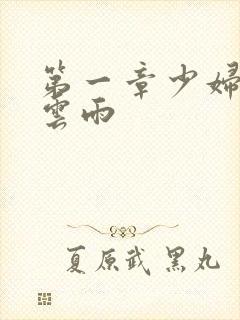 第一章少婦
雲雨
夏原武 黑丸